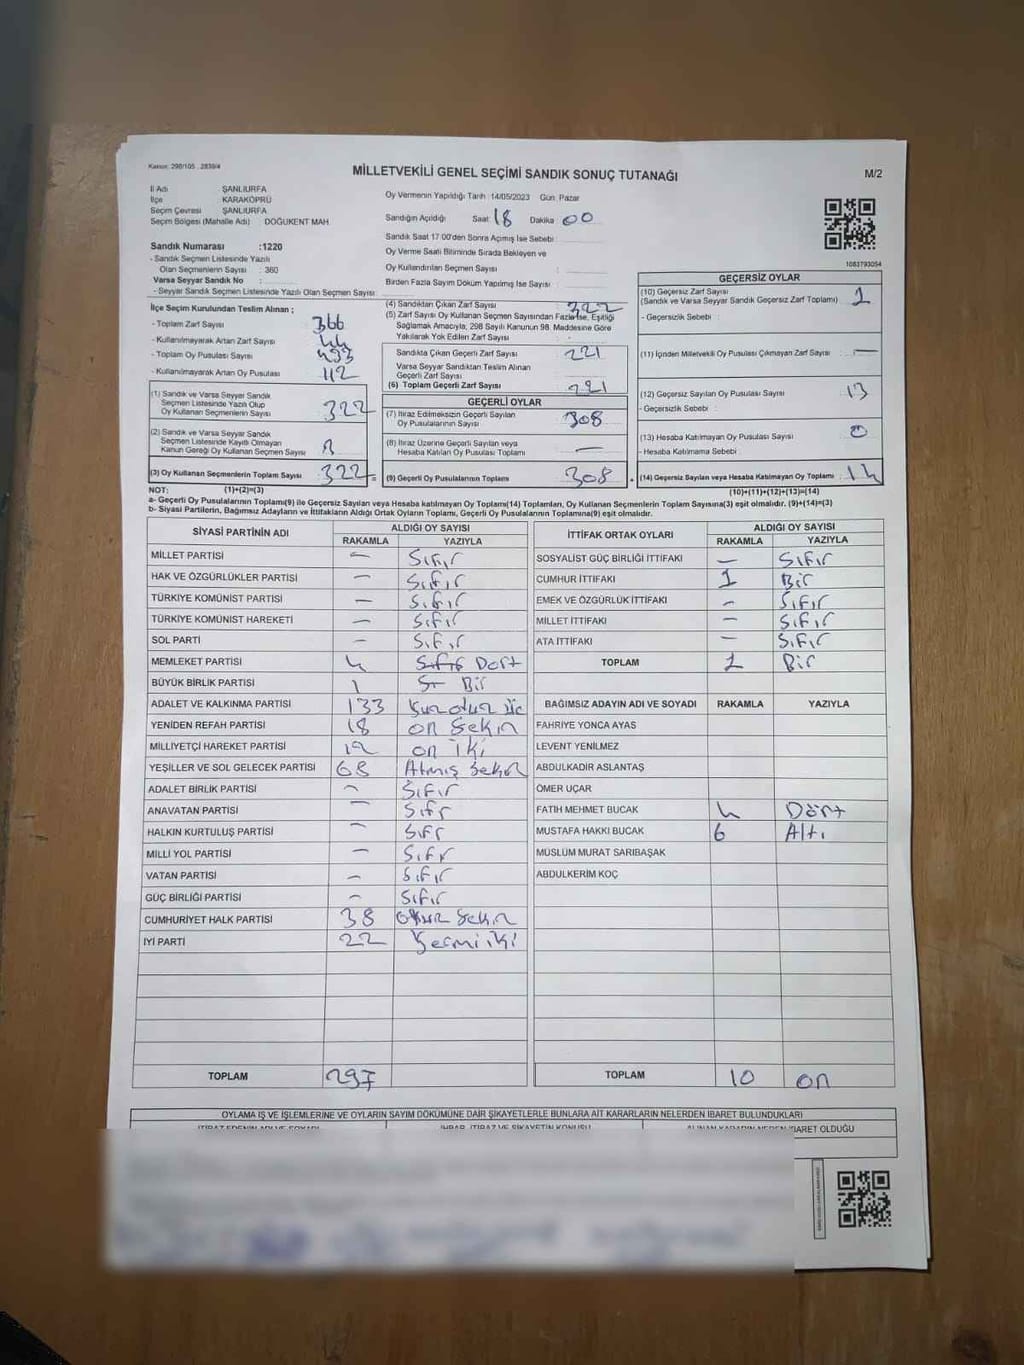 Kanun: 298/105 , 2839/4
MİLLETVEKİLİ GENEL SEÇİMİ SANDIK SONUÇ TUTANAĞI
M/2
İl Adı ŞANLIURFA
İlçe KARAKÖPRÜ
Seçim Çevresi ŞANLIURFA
Seçim Bölgesi (Mahalle Adı) DOĞUKENT MAH.
Oy Vermenin Yapıldığı Tarih :14/05/2023 Gün: Pazar
Sandığın Açıldığı Saat 18 Dakika 00
Sandık Saat 17.00'den Sonra Açılmış İse Sebebi :
Oy Verme Saati Bitiminde Sırada Bekleyen ve
Oy Kullandırılan Seçmen Sayısı :
Birden Fazla Sayım Döküm Yapılmış İse Sayısı :
1083793054
Sandık Numarası :1220
- Sandık Seçmen Listesinde Yazılı
Olan Seçmenlerin Sayısı : 360
Varsa Seyyar Sandık No :
- Seyyar Sandık Seçmen Listesinde Yazılı Olan Seçmen Sayısı :
İlçe Seçim Kurulundan Teslim Alınan ;
- Toplam Zarf Sayısı 366
- Kullanılmayarak Artan Zarf Sayısı 44
- Toplam Oy Pusulası Sayısı
- Kullanılmayarak Artan Oy Pusulası 112
(1) Sandık ve Varsa Seyyar Sandık
Seçmen Listesinde Yazılı Olup
Oy Kullanan Seçmenlerin Sayısı 322
(2) Sandık ve Varsa Seyyar Sandık
Seçmen Listesinde Kayıtlı Olmayan
Kanun Gereği Oy Kullanan Seçmen Sayısı
(3) Oy Kullanan Seçmenlerin Toplam Sayısı 322
(4) Sandıktan Çıkan Zarf Sayısı 322
(5) Zarf Sayısı Oy Kullanan Seçmen Sayısından Fazla İse, Eşitliği
Sağlamak Amacıyla, 298 Sayılı Kanunun 98. Maddesine Göre
Yakılarak Yok Edilen Zarf Sayısı :
Sandıkta Çıkan Geçerli Zarf Sayısı 221
Varsa Seyyar Sandıktan Teslim Alınan
Geçerli Zarf Sayısı
(6) Toplam Geçerli Zarf Sayısı 221
GEÇERLİ OYLAR
(7) İtiraz Edilmeksizin Geçerli Sayılan
Oy Pusulalarının Sayısı 308
(8) İtiraz Üzerine Geçerli Sayılan veya
Hesaba Katılan Oy Pusulası Toplamı —
(9) Geçerli Oy Pusulalarının Toplamı 308
GEÇERSİZ OYLAR
(10) Geçersiz Zarf Sayısı
(Sandık ve Varsa Seyyar Sandık Geçersiz Zarf Toplamı) 1
- Geçersizlik Sebebi :
(11) İçinden Milletvekili Oy Pusulası Çıkmayan Zarf Sayısı : —
(12) Geçersiz Sayılan Oy Pusulası Sayısı 13
- Geçersizlik Sebebi :
(13) Hesaba Katılmayan Oy Pusulası Sayısı 0
- Hesaba Katılmama Sebebi :
(14) Geçersiz Sayılan veya Hesaba Katılmayan Oy Toplamı : 14
NOT: (1)+(2)=(3) (10)+(11)+(12)+(13)=(14)
a- Geçerli Oy Pusulalarının Toplamı(9) ile Geçersiz Sayılan veya Hesaba katılmayan Oy Toplamı(14) Toplamları, Oy Kullanan Seçmenlerin Toplam Sayısına(3) eşit olmalıdır. (9)+(14)=(3)
b- Siyasi Partilerin, Bağımsız Adayların ve İttifakların Aldığı Ortak Oyların Toplamı, Geçerli Oy Pusulalarının Toplamına(9) eşit olmalıdır.
SİYASİ PARTİNİN ADI ALDIĞI OY SAYISI
RAKAMLA YAZIYLA
MİLLET PARTİSİ — Sıfır
HAK VE ÖZGÜRLÜKLER PARTİSİ — Sıfır
TÜRKİYE KOMÜNİST PARTİSİ — Sıfır
TÜRKİYE KOMÜNİST HAREKETİ — Sıfır
SOL PARTİ — Sıfır
MEMLEKET PARTİSİ 4 Dört
BÜYÜK BİRLİK PARTİSİ 1 Bir
ADALET VE KALKINMA PARTİSİ 133
YENİDEN REFAH PARTİSİ 18 on Sekiz
MİLLİYETÇİ HAREKET PARTİSİ 12 on iki
YEŞİLLER VE SOL GELECEK PARTİSİ 68 Atmış Sekiz
ADALET BİRLİK PARTİSİ — Sıfır
ANAVATAN PARTİSİ — Sıfr
HALKIN KURTULUŞ PARTİSİ — Sıfr
MİLLİ YOL PARTİSİ — Sıfr
VATAN PARTİSİ — Sıfır
GÜÇ BİRLİĞİ PARTİSİ — Sıfır
CUMHURİYET HALK PARTİSİ 38 Sekiz
İYİ PARTİ 22 Yermi iki
TOPLAM 297
İTTİFAK ORTAK OYLARI ALDIĞI OY SAYISI
RAKAMLA YAZIYLA
SOSYALİST GÜÇ BİRLİĞİ İTTİFAKI — Sıfır
CUMHUR İTTİFAKI 1 Bir
EMEK VE ÖZGÜRLÜK İTTİFAKI — Sıfır
MİLLET İTTİFAKI — Sıfır
ATA İTTİFAKI — Sıfır
TOPLAM 1 Bir
BAĞIMSIZ ADAYIN ADI VE SOYADI RAKAMLA YAZIYLA
FAHRİYE YONCA AYAS
LEVENT YENİLMEZ
ABDULKADİR ASLANTAŞ
ÖMER UÇAR
FATİH MEHMET BUCAK 4 Dört
MUSTAFA HAKKI BUCAK 6 Altı
MÜSLÜM MURAT SARIBAŞAK
ABDULKERİM KOÇ
TOPLAM 10 on
OYLAMA İŞ VE İŞLEMLERİNE VE OYLARIN SAYIM DÖKÜMÜNE DAİR ŞİKAYETLERLE BUNLARA AİT KARARLARIN NELERDEN İBARET BULUNDUKLARI
İTİRAZ EDENİN ADI VE SOYADI İHBAR, İTİRAZ VE ŞİKAYETİN KONUSU ALINAN KARARIN NEDEN İBARET OLDUĞU